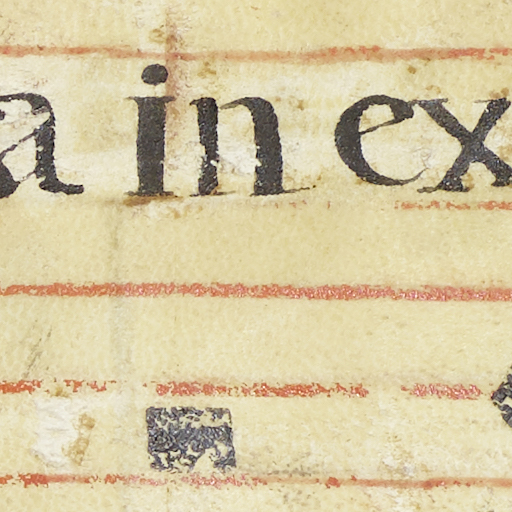 a in ex